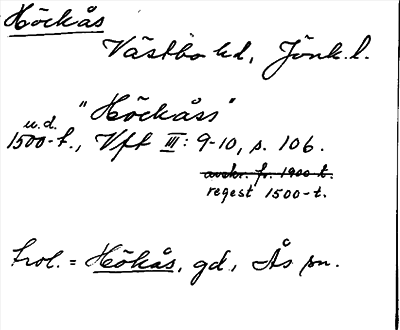 Höckås
Västbo hd, Jönk. l.
"Höckåss"
u.d.
1500-t., Vft III: 9-10, s. 106.
avskr. fr. 1900-t.
regest 1500-t.
trol. = Hökås, gd, Ås sn.